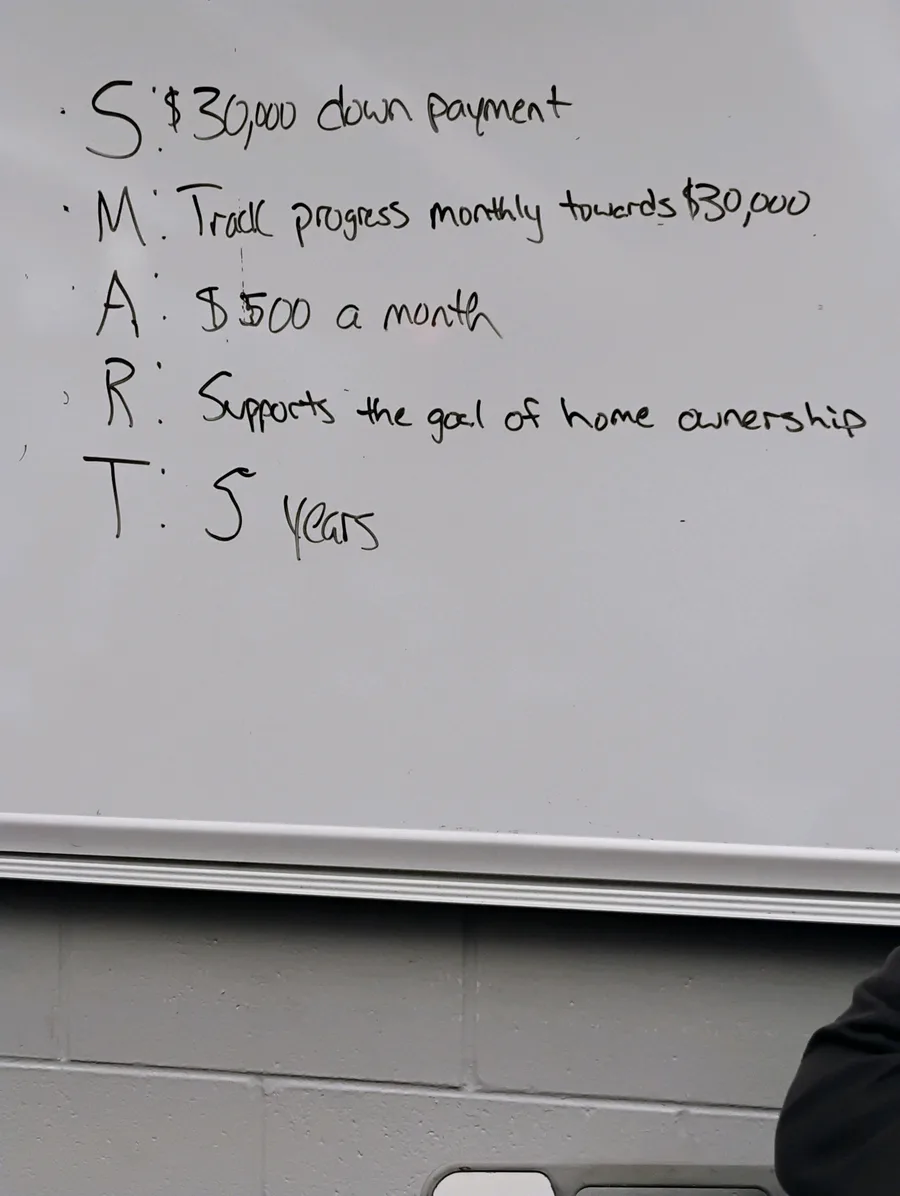 S: $30,000 down payment
M: Track progress monthly towards $30,000
A: $500 a month
R: Supports the goal of home ownership
T: 5 years